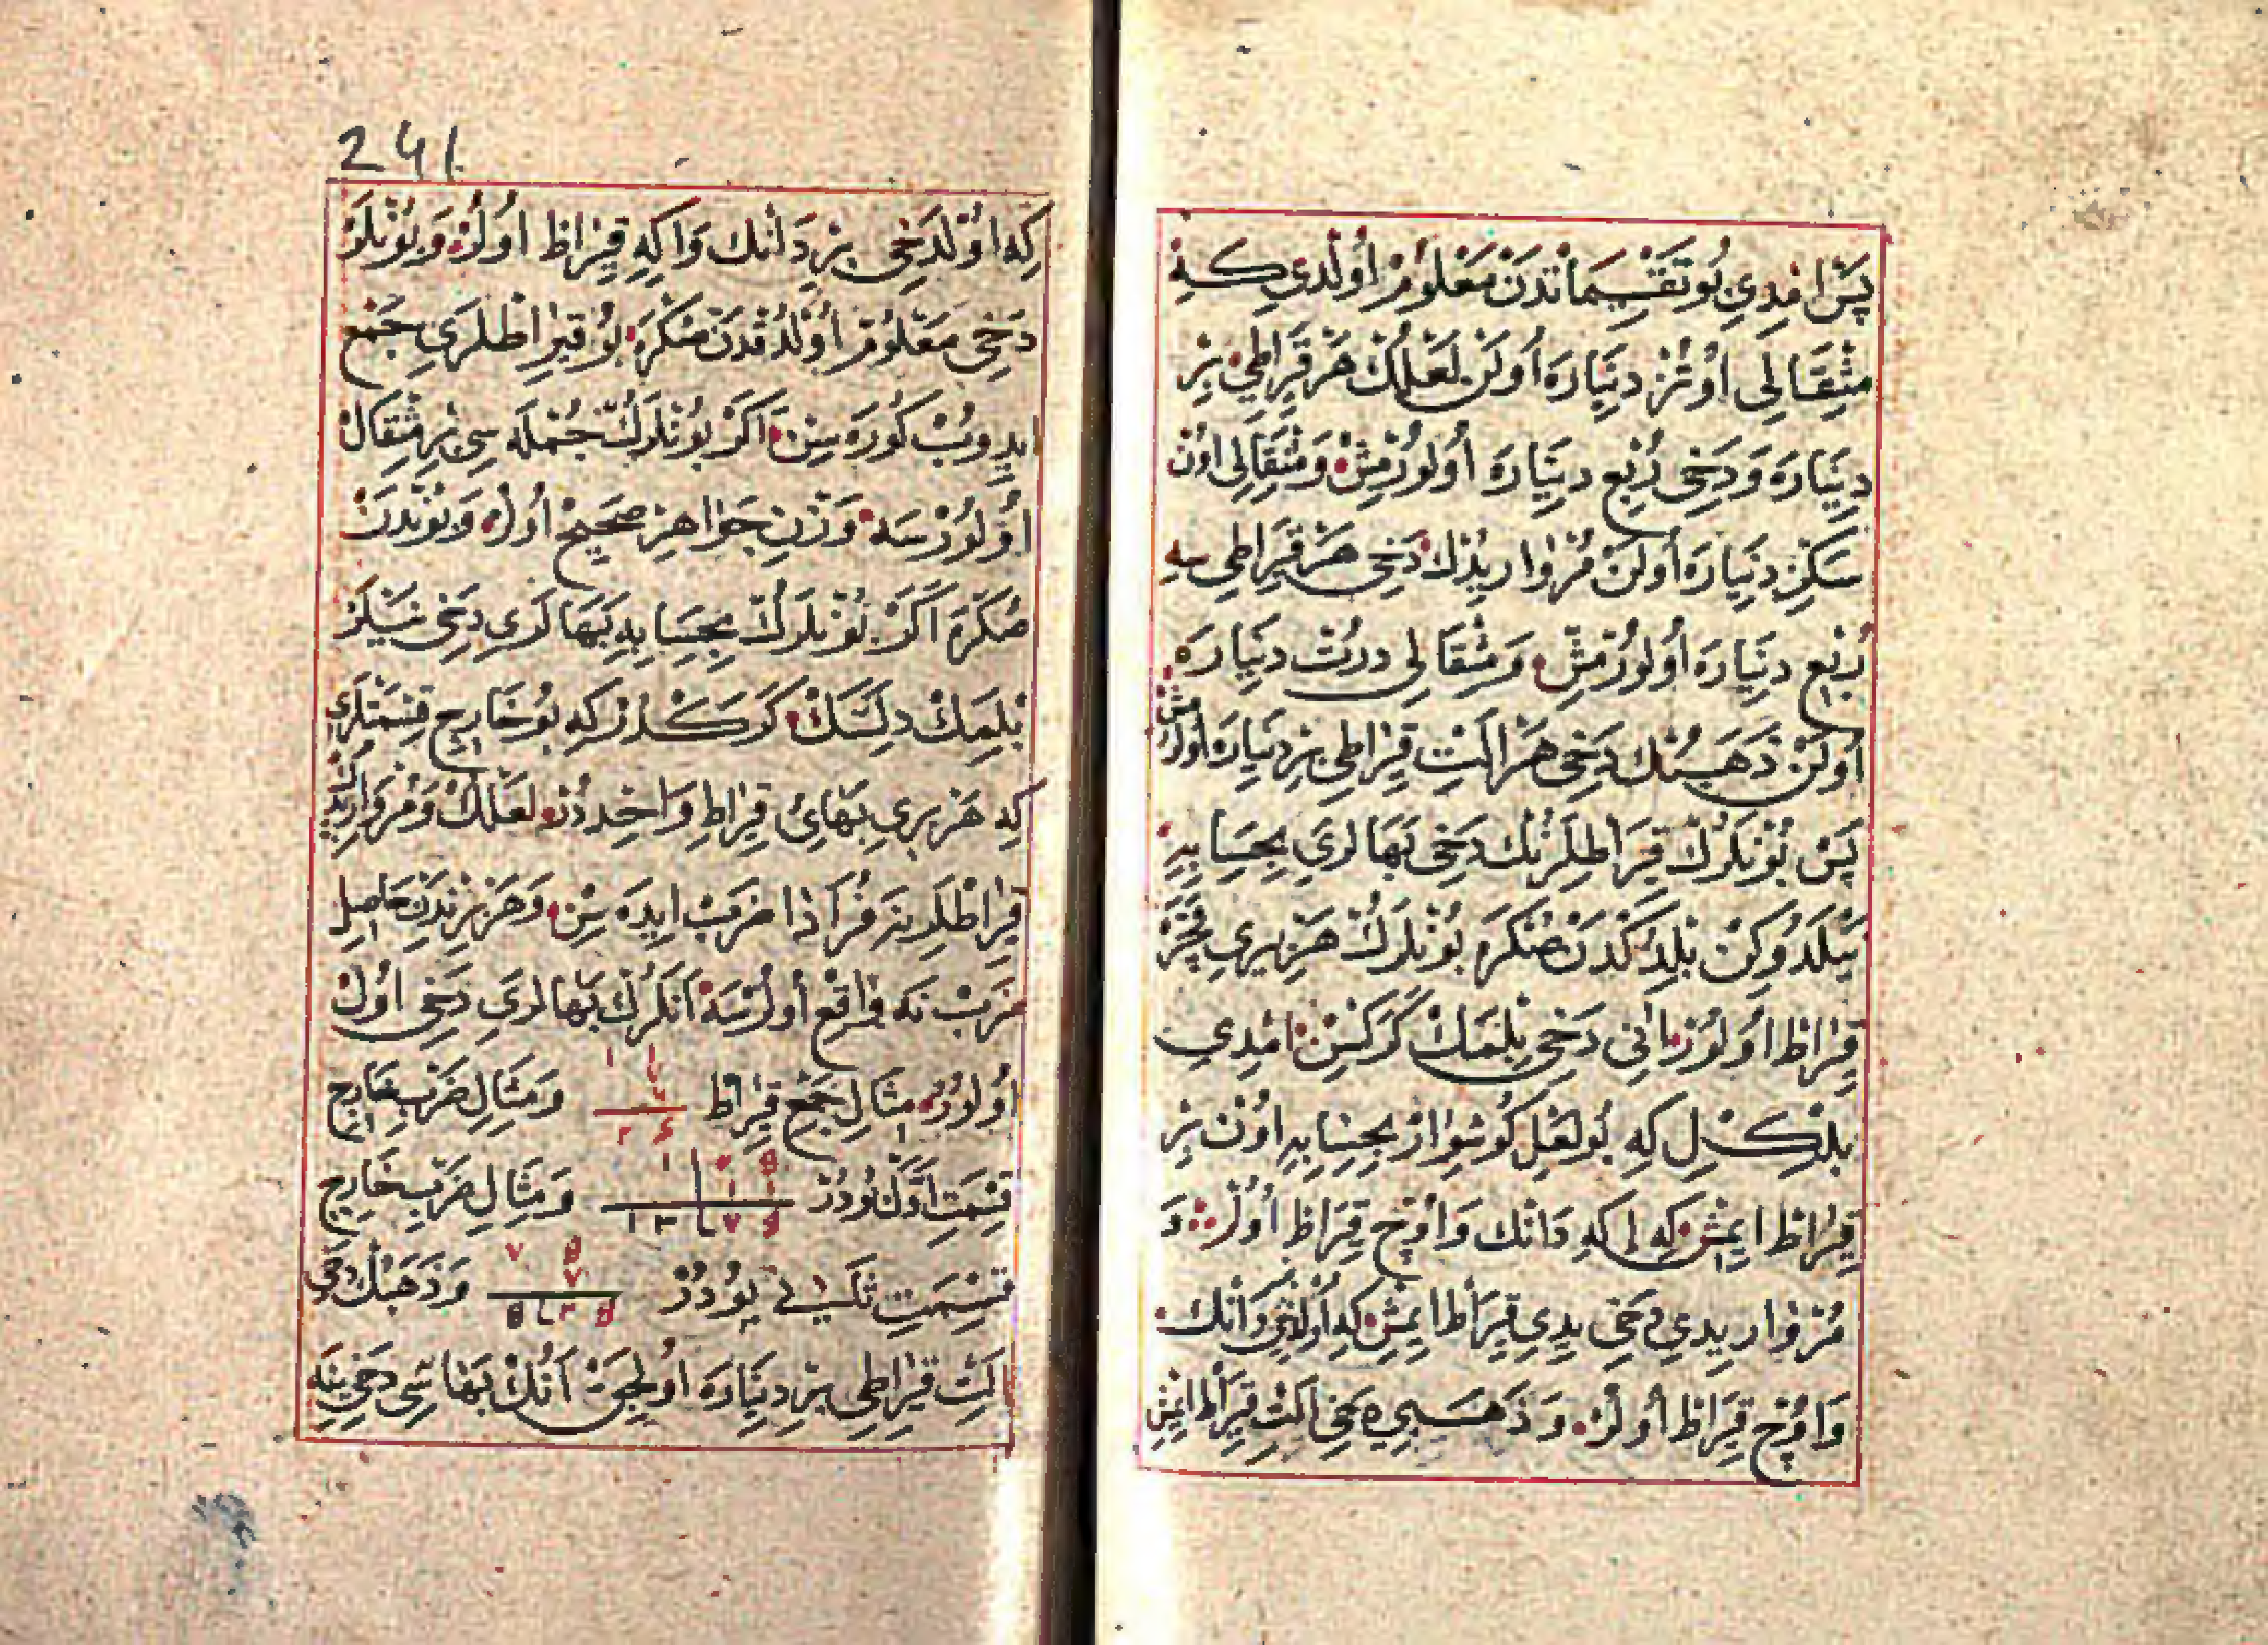 پس امدی بو تقسیماتدن معلوم اولدی که
مثقالی اوتز دیناره اولن لعلك هر قیراطی بر
دیناره و دخی ربع دیناره اولورمش و مثقالی اون
سکز دیناره اولن مرواریدك دخی هر قیراطی سه
ربع دیناره اولورمش و مثقالی درت دیناره
اولن ذهبك دخی هر الت قیراطی بر دیناره اولرمش
پس بونلرك قیراطلرنك دخی بهالری بحسابه
بیلدوکن بلدکدن صنکره بونلرك هر بری قچر
قیراط اولور انی دخی بلمك کرکسن امدی
بلکل که بو لعل کوشوار بحسابه اون بر
قیراط ایمش که ایکه دانك و اوچ قیراط اولر و
مرواریدی دخی یدی قیراط ایمش که اولدخی دانك
و اوچ قیراط اولر و ذهبی دخی الت قیراط ایمش
241
که اولدخی بر دانك و اکه قیراط اولر و بونلر
دخی معلوم اولدقدن صنکره بو قیراطلری جمع
ایدوب کوره سن اکر بونلرك جمله سی بر مثقال
اولورسه وزن جواهر صحیح اوله و بوندن
صکره اکر بونلرك بحسابه بهالری دخی نیلر
بلمك دلسك کرکدر که بو خارج قسمتلری
که هر بری بهای قیراط واحددر لعلك و مرواریدك
قیراطلرینه فرادا ضرب ایده سن و هر برندن حاصل
ضرب نه واقع اولرسه انلرك بهالری دخی اول
اولور مثال جمع قیراط و مثال ضرب خارج
قسمت اول بودر و مثال ضرب خارج
قسمت ثانی بودر و ذهبك دخی
الت قیراطی بر دیناره اولیجق انك بهاسی دخی ینه